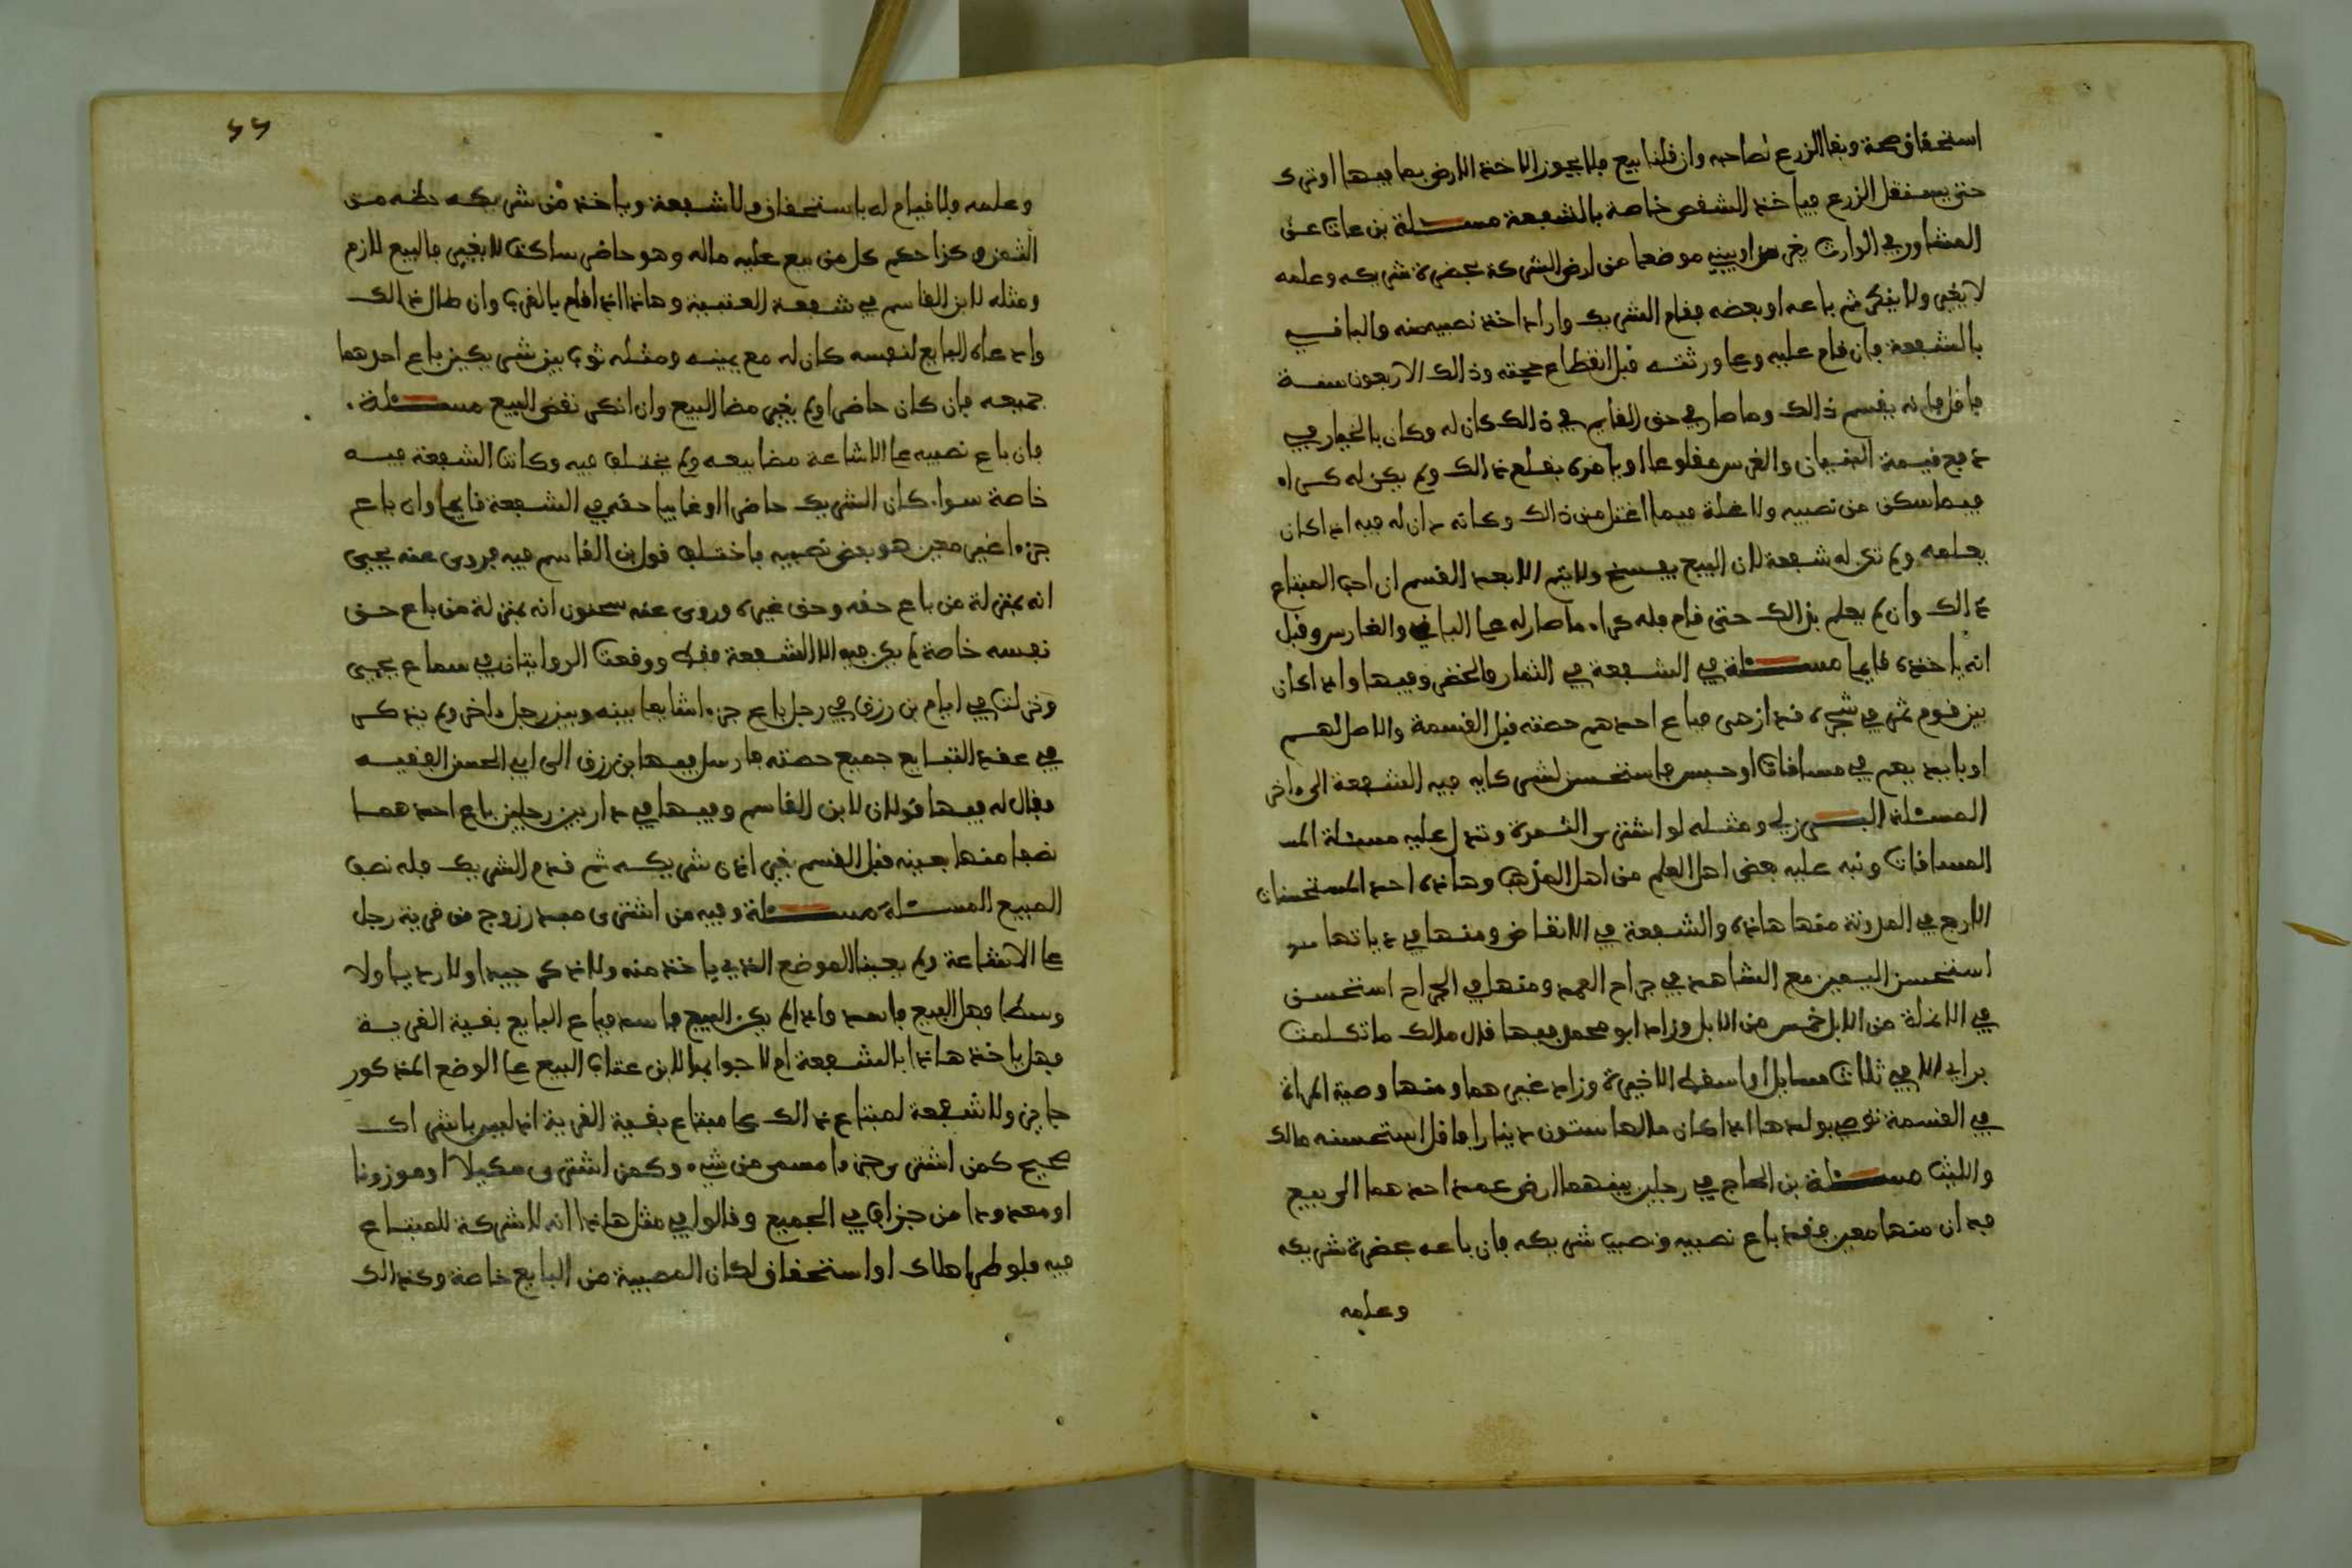 استحقاق صحة وبقا الزرع لصاحبه وان قلنا بيع فلا يجوز الا اخذ الارض بما فيها او تترك
حتى يستقل الزرع فياخذ الشقص خاصة بالشفعة مسئلة بن عات عن
المشاور في الوارث يغرس او يبني موضعا من ارض الشركة بحضرة شريكه وعلمه
لا يغير ولا ينكر ثم باعه او بعضه فقام الشريك واراد اخذ نصيبه منه والباقي
بالشفعة فان قام عليه وعلى ورثته قبل انقطاع حجته وذالك الاربعون سنة
فاقل فانه يقسم ذالك وما صار في حق القايم في ذالك كان له وكان بالخيار في
دفع قيمة البنيان والغرس مقلوعا او يامره بقلع ذالك ولم يكن له كراء
فيما سكن من نصيبه ولا غلة فيما اغتل من ذالك وكانه اذن له فيه اذا كان
بعلمه ولم تكن له شفعة لان البيع يفسخ ولا يتم الا بعد القسم ان احب المبتاع
ذالك وان لم يعلم بذالك حتى قام فله كراء ما صار له على الباني والغارس وقيل
انه ياخذه قايما مسئلة في الشفعة في الثمار والخضر وفيها واذا كان
بين قوم ثمر في شجر قد ازهى فباع احدهم حصته قبل القسمة والاصل لهم
او بايديهم في مساقات او حبس فاستحسن لشركايه فيه الشفعة الى اخر
المسئلة البرزلي ومثله لو اشترى الثمرة وتدل عليه مسئلة المسـ
المساقات ونبه عليه بعض اهل العلم من اهل المذهب وهاذه احد المستحسنات
الاربع في المدونة منها هاذه والشفعة في الانقاض ومنها في دياتها
استحسن اليمين مع الشاهد في جراح العمد ومنها في الجراح استحسن
في الانملة من الابل خمس من الابل وزاد ابو محمد فيها قال مالك ما تكلمت
براي الا في ثلاث مسايل او اسقط الاخيرة وزاد غيرهما ومنها وصية المراة
في القسمة توصي بولدها اذا كان مالها ستون دينارا فاقل استحسنه مالك
والليث مسئلة بن الحاج في رجلين بينهما ارض عمد احدهما الى بيع
فدان منها معين فقد باع نصيبه ونصيب شريكه فان باعه بحضرة شريكه
وعلمه
وعلمه فلا قيام له باستحقاق ولا شفعة وياخذ من شريكه حظه من
الثمن وكذا حكم كل من بيع عليه ماله وهو حاضر ساكت لا يغير فالبيع لازم
ومثله لابن القاسم في شفعة العتبية وهاذا اذا قام بالقرب وان طال ذالك
وادعاه البايع لنفسه كان له مع يمينه ومثله ثوب بين شريكين باع احدهما
جميعه فان كان حاضرا ولم يغير مضا البيع وان انكر نقض البيع مسئلة.
فان باع نصيبه على الاشاعة مضا بيعه ولم يختلف فيه وكانت الشفعة فيه
خاصة سواء كان الشريك حاضرا او غايبا حقه في الشفعة قايما وان باع
جزءا غير معين هو بعض نصيبه فاختلف قول بن القاسم فيه فروى عنه يحيى
انه بمنزلة من باع حقه وحق غيره وروى عنه سحنون انه بمنزلة من باع حق
نفسه خاصة لم يكن فيه الا الشفعة فقط ووقعت الروايتان في سماع يحيى
ونزلت في ايام بن رزق في رجل باع جزءا شايعا بينه وبين رجل اخر ولم يذكر
في عقد التبايع جميع حصته فارسل فيها بن رزق الى ابي الحسن الفقيه
فقال له فيها قولان لابن القاسم وفيها في دار بين رجلين باع احدهما
نصفا منها بعينه قبل القسم بغير اذن شريكه ثم قدم الشريك فله نصف
المبيع المسئلة مسئلة وفيه من اشترى مبذر زوج من قرية رجل
على الاشاعة ولم يعينا الموضع الذي ياخذ منه ولا ذكر جيدا ولا رديا ولا
وسطا فهل البيع فاسد واذا لم يكن البيع فاسد فباع البايع بقية القرية
فهل ياخذ هاذا بالشفعة ام لا جوابها لابن عتاب البيع على الوضع المذكور
جايز ولا شفعة لمبتاع ذالك على مبتاع بقية القرية اذ ليس باشراك
صحيح كمن اشترى جزءا مسمى من شيء وكمن اشترى مكيلا او موزونا
او معدودا من جزاف في الجميع وقالوا في مثل هاذا انه لا شركة للمبتاع
فيه فلو طرا هلاك او استحقاق لكان المصيبة من البايع خاصة وكذالك